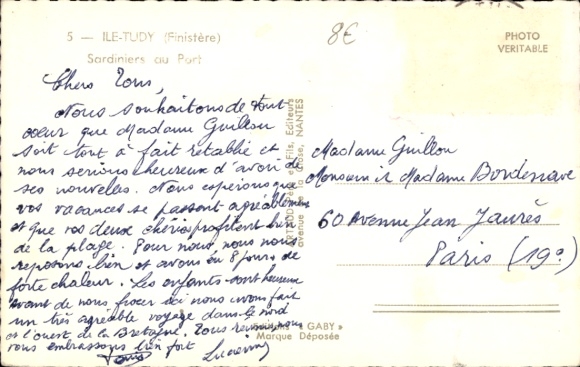 5 - ILE-TUDY (Finistère)
Sardiniers au Port
8€
PHOTO
VERITABLE
Chers Tous,
Nous souhaitons de tout
coeur que Madame Guillou
soit tout à fait rétablie et
nous serions heureux d'avoir de
ses nouvelles. Nous espérons que
vos vacances se passent agréablement
et que vos deux chéris profitent bien
de la plage. Pour nous, nous nous
reposons bien et avons eu 8 jours de
forte chaleur. Les enfants sont heureux
avant de nous fixer ici nous avons fait
un très agréable voyage dans le nord
et l'ouest de la Bretagne. Tous
vous embrassons bien fort
Madame Guillou
Monsieur et Madame Bordenave
60 Avenue Jean Jaurès
Paris (19e)
et Fils, Editeurs
NANTES
« GABY »
Marque Déposée